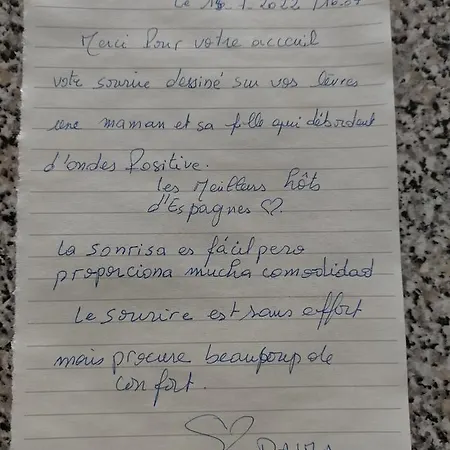 Merci Pour votre acceuil
votre sourire dessiné sur vos lèvres
une maman et sa fille qui débordent
d'ondes Positive.
les Meilleurs hôts
d'Espagnes ♡.
La sonrisa es fácil pero
proporciona mucha comodidad
Le sourire est sans effort
mais procure beaucoup de
confort.